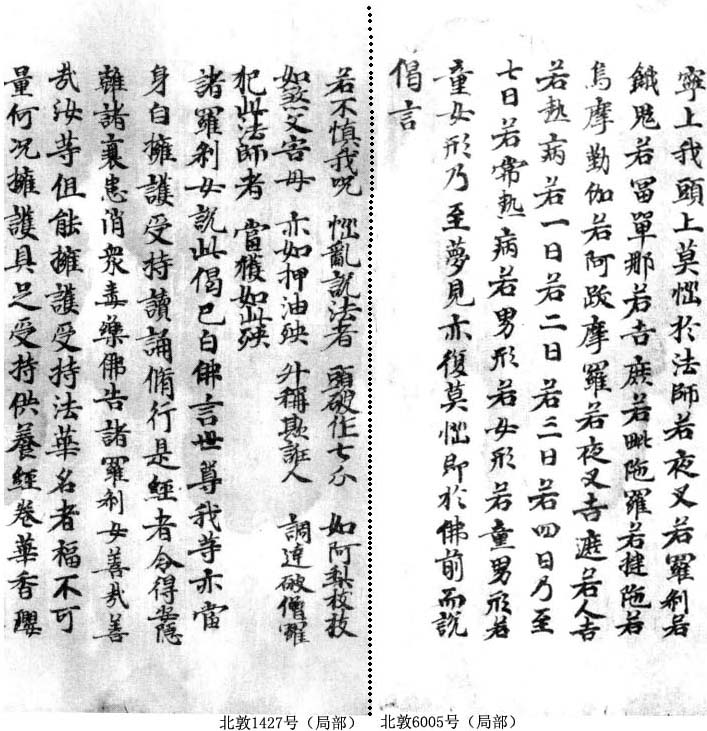 寧上我頭上莫惱於法師若夜叉若羅刹若
餓鬼若富單那若吉蔗若毗陁羅若揵陁若
烏摩勤伽若阿跋摩羅若夜叉吉遮若人吉
若熱病若一日若二日若三日若四日乃至
七日若常熱病若男形若女形若童男形若
童女形乃至夢見亦復莫惱即於佛前而說
偈言
若不慎我呪 惱亂說法者 頭破作七分 如阿梨樹枝
如煞父害母 亦如押油殃 升稱欺誑人 調達破僧罪
犯此法師者 當獲如此殃
諸羅刹女說此偈已白佛言世尊我等亦當
身自擁護受持讀誦脩行是經者令得安隱
離諸襄患消衆毒藥佛告諸羅刹女善哉善
哉汝等但能擁護受持法華名者福不可
量何况擁護具足受持供養經卷華香瓔
北敦1427号（局部） 北敦6005号（局部）